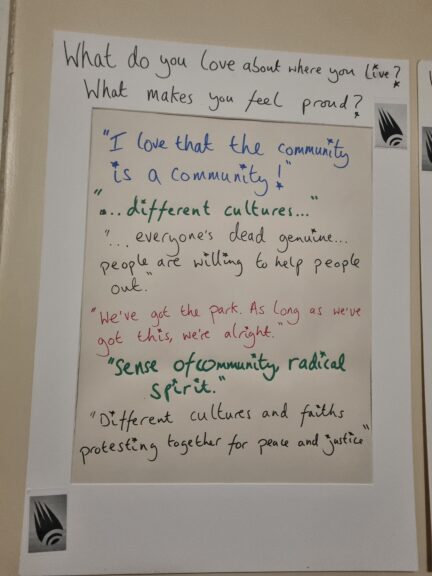 What do you love about where you live?
What makes you feel proud?
"I love that the community
is a community!"
"... different cultures..."
"... everyone's dead genuine...
people are willing to help people
out."
"We've got the park. As long as we've
got this, we're alright."
"Sense of community, radical
spirit."
"Different cultures and faiths
protesting together for peace and justice"